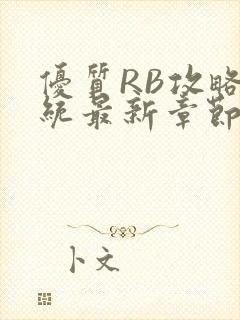 優質RB攻略
統最新章節
卜文